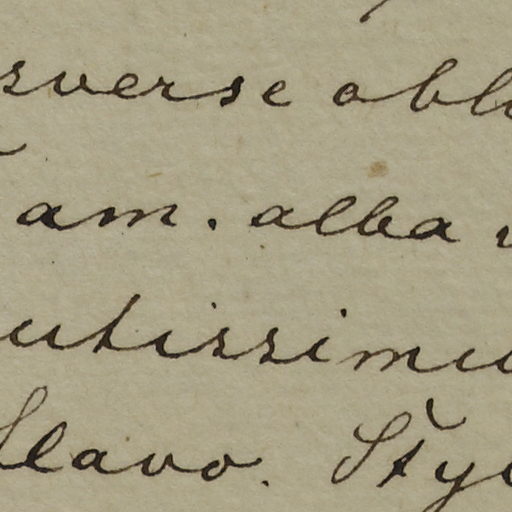 sverse obl
am. alba
utissimu
flavo. Sty